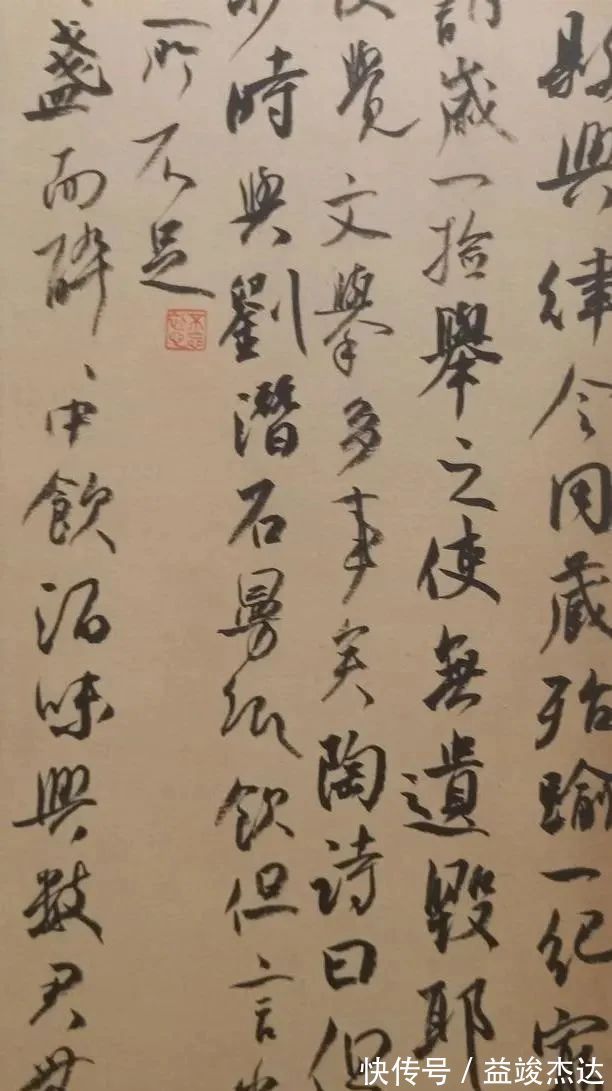 與律令同藏殆踰一紀家
歲一撿舉之使無遺毀耶
覺文舉多事矣陶詩曰但
時與劉潛石曼卿飲但言
所不足
盞而醉中飲酒味與數君無
快传号/益竣杰达